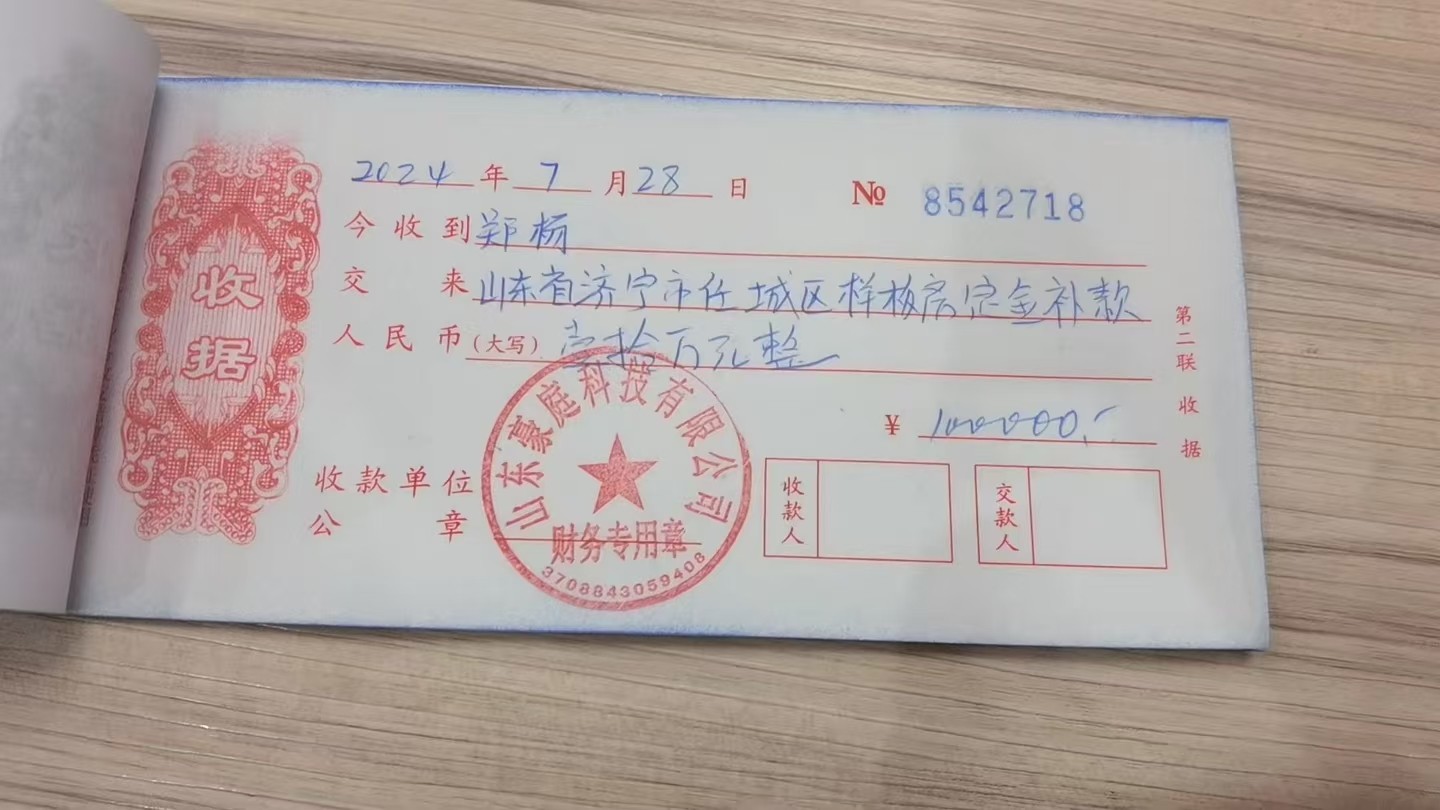 2024 年 7 月 28 日 № 8542718
今收到 郑杨
交来 山东省济宁市任城区样板房定金补款
人民币(大写) 壹拾万元整
¥ 100000.-
收款单位
公章
收款人
交款人
收据
第二联 收据
山东豪庭科技有限公司
财务专用章
3708843059408